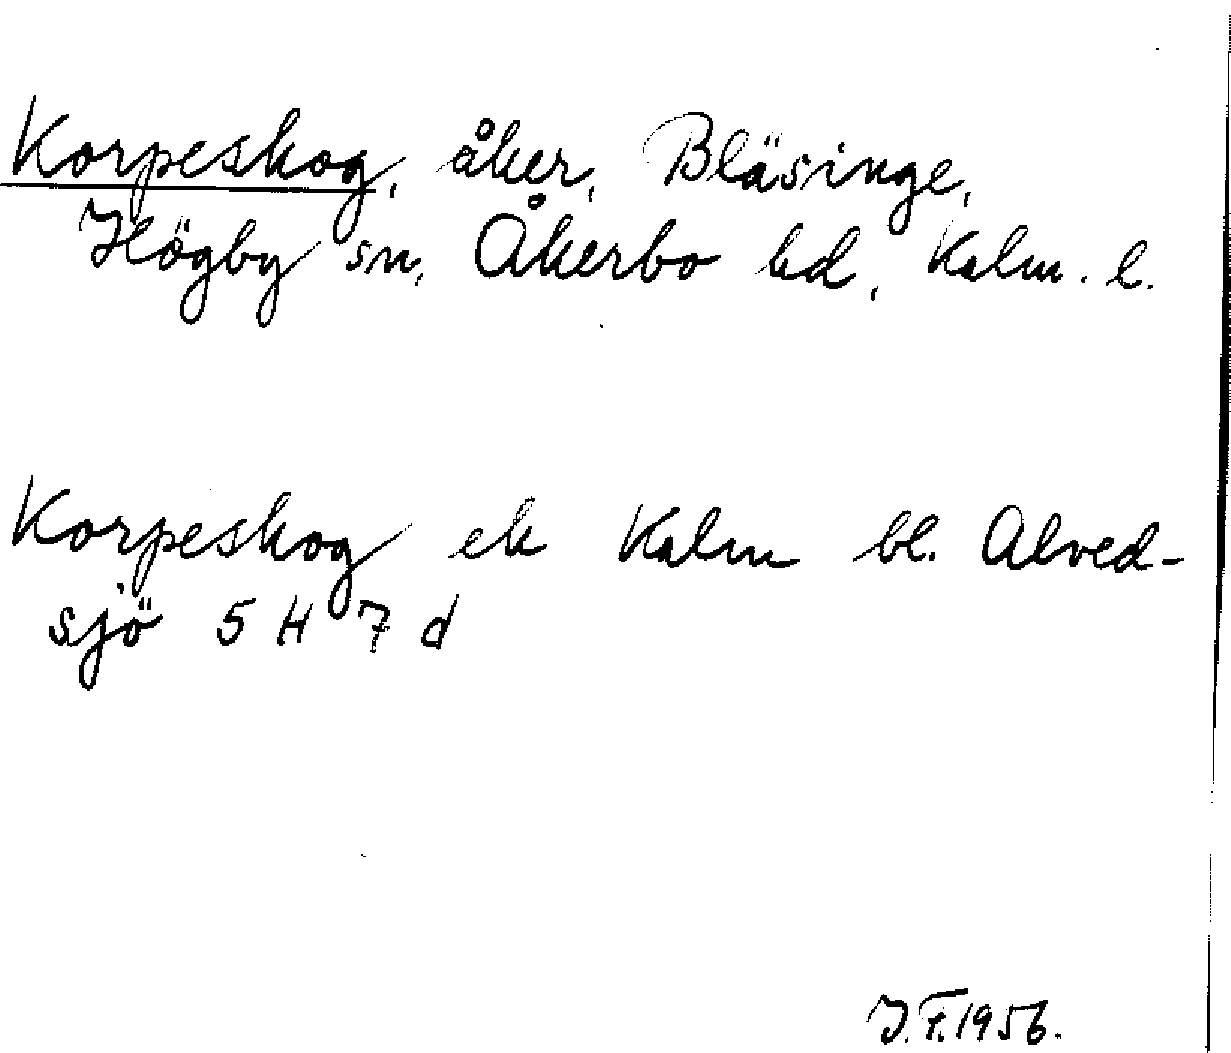 Korpeskog, åker, Bläsinge,
Högby sn, Åkerbo hd, Kalm. l.
Korpeskog ek Kalm bl. Alved-
sjö 5 H 7 d
J.F.1956.